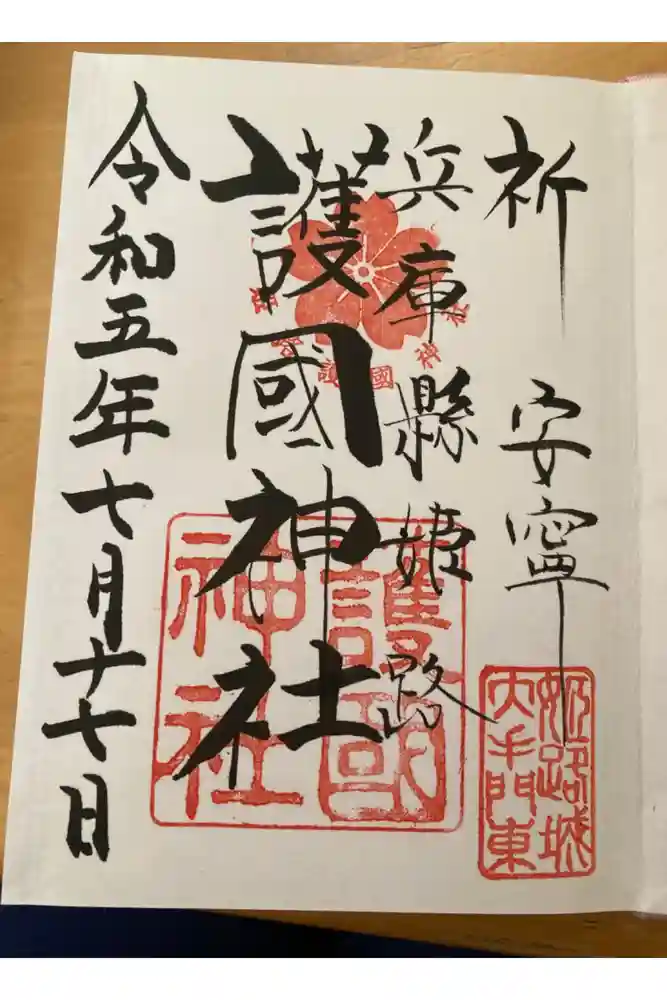 祈 安寧
兵庫縣姫路
護國神社
令和五年七月十七日
姫路城
大手門東
護國
神社